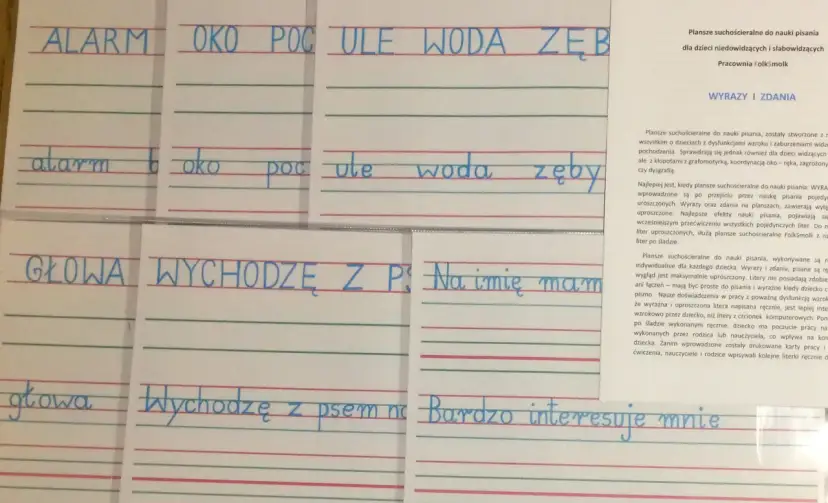 ALARM
alarm
OKO POC
oko poc
ULE WODA ZĘB
ule woda zęby
GŁOWA
głowa
WYCHODZĘ Z PS
Wychodzę z psem na
Na imię mam
Bardzo interesuje mnie
Plansze suchościeralne do nauki pisania
dla dzieci niedowidzących i słabowidzących
Pracownia FolkSmolk
WYRAZY I ZDANIA
Plansze suchościeralne do nauki pisania, zostały stworzone z
wszystkim o dzieciach z dysfunkcjami wzroku i zaburzeniami
pochodzenia. Sprawdzają się jednak również dla dzieci widzących
ale z kłopotami z grafomotyrką, koordynacją oko – ręka,
czy dysgrafią.
Najlepiej jest, kiedy plansze suchościeralne do nauki pisania:
wprowadzone są po przejściu przez naukę pisania
uroszczonych. Wyrazy oraz zdania na planszach, zawierają
uproszczone. Najlepsze efekty nauki pisania, pojawiają
wcześniejszym przećwiczeniu wszystkich pojedynczych liter. Do
liter uproszczonych, służą plansze suchościeralne FolkSmolk z
liter po śladzie.
Plansze suchościeralne do nauki pisania, wykonywane są
indywidualnie dla każdego dziecka. Wyrazy i zdania, pisane są
wygląd jest maksymalnie uproszczony. Litery nie posiadają
ani łączeń – mają być proste do pisania i wyraźne kiedy dziecko
pismo. Nasze doświadczenia w pracy z poważną dysfunkcją
że wyraźna i uproszczona litera napisana ręcznie, jest lepiej
wzrokowo przez dziecko, niż litery z czcionek komputerowych.
po śladzie wykonanym ręcznie, dziecko ma poczucie pracy na
wykonanych przez rodzica lub nauczyciela, co wpływa na
dziecka. Zanim wprowadzone zostały drukowane karty pracy i
ćwiczenia, nauczyciele i rodzice wpisywali kolejne literki ręcznie